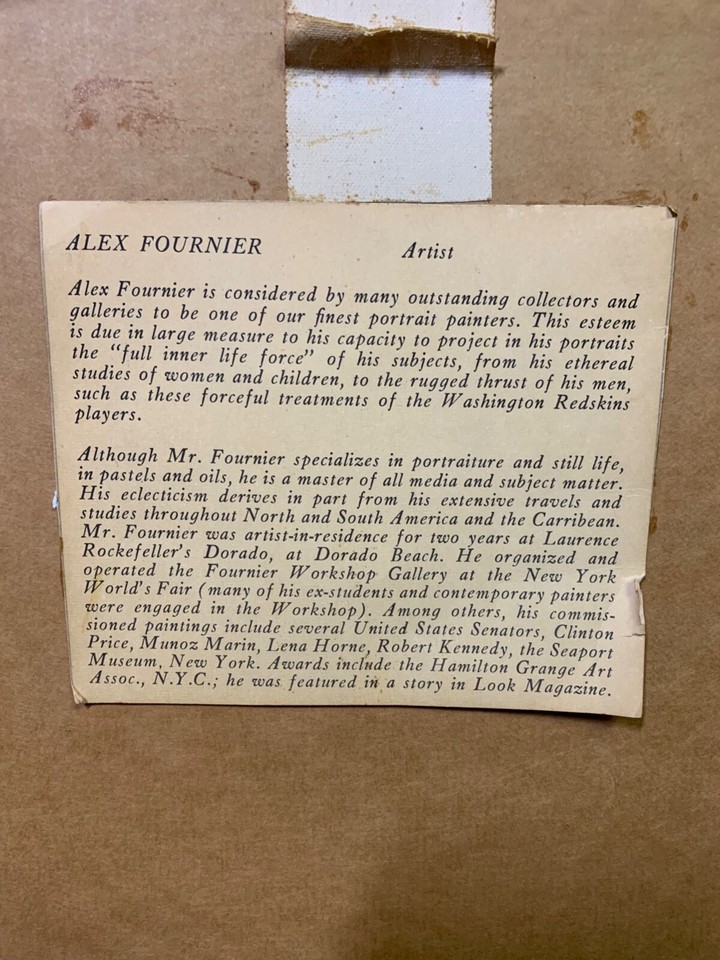 ALEX FOURNIER Artist
Alex Fournier is considered by many outstanding collectors and
galleries to be one of our finest portrait painters. This esteem
is due in large measure to his capacity to project in his portraits
the "full inner life force" of his subjects, from his ethereal
studies of women and children, to the rugged thrust of his men,
such as these forceful treatments of the Washington Redskins
players.
Although Mr. Fournier specializes in portraiture and still life,
in pastels and oils, he is a master of all media and subject matter.
His eclecticism derives in part from his extensive travels and
studies throughout North and South America and the Carribean.
Mr. Fournier was artist-in-residence for two years at Laurence
Rockefeller's Dorado, at Dorado Beach. He organized and
operated the Fournier Workshop Gallery at the New York
World's Fair (many of his ex-students and contemporary painters
were engaged in the Workshop). Among others, his commis-
sioned paintings include several United States Senators, Clinton
Price, Munoz Marin, Lena Horne, Robert Kennedy, the Seaport
Museum, New York. Awards include the Hamilton Grange Art
Assoc., N.Y.C.; he was featured in a story in Look Magazine.